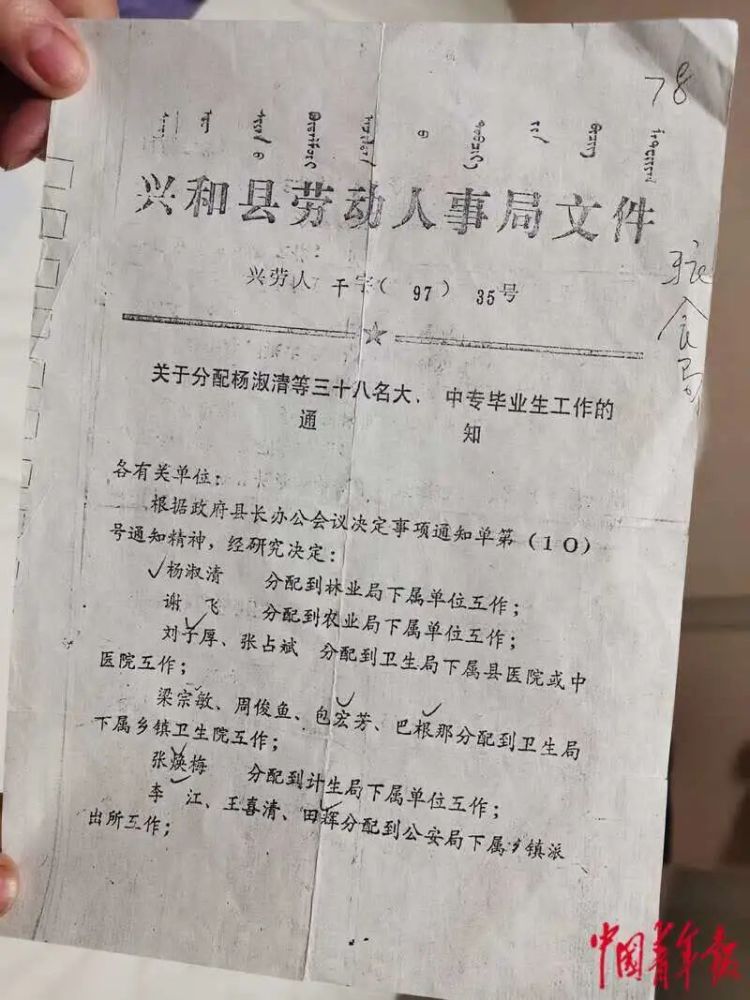 78
兴和县劳动人事局文件
兴劳人干字（97）35号
关于分配杨淑清等三十八名大、中专毕业生工作的
通 知
各有关单位：
根据政府县长办公会议决定事项通知单第（10）
号通知精神，经研究决定：
杨淑清 分配到林业局下属单位工作；
谢 飞 分配到农业局下属单位工作；
刘子厚、张占斌 分配到卫生局下属县医院或中
医院工作；
梁宗敏、周俊鱼、包宏芳、巴根那分配到卫生局
下属乡镇卫生院工作；
张焕梅 分配到计生局下属单位工作；
李 江、王喜清、田辉分配到公安局下属乡镇派
出所工作；
中国青年报